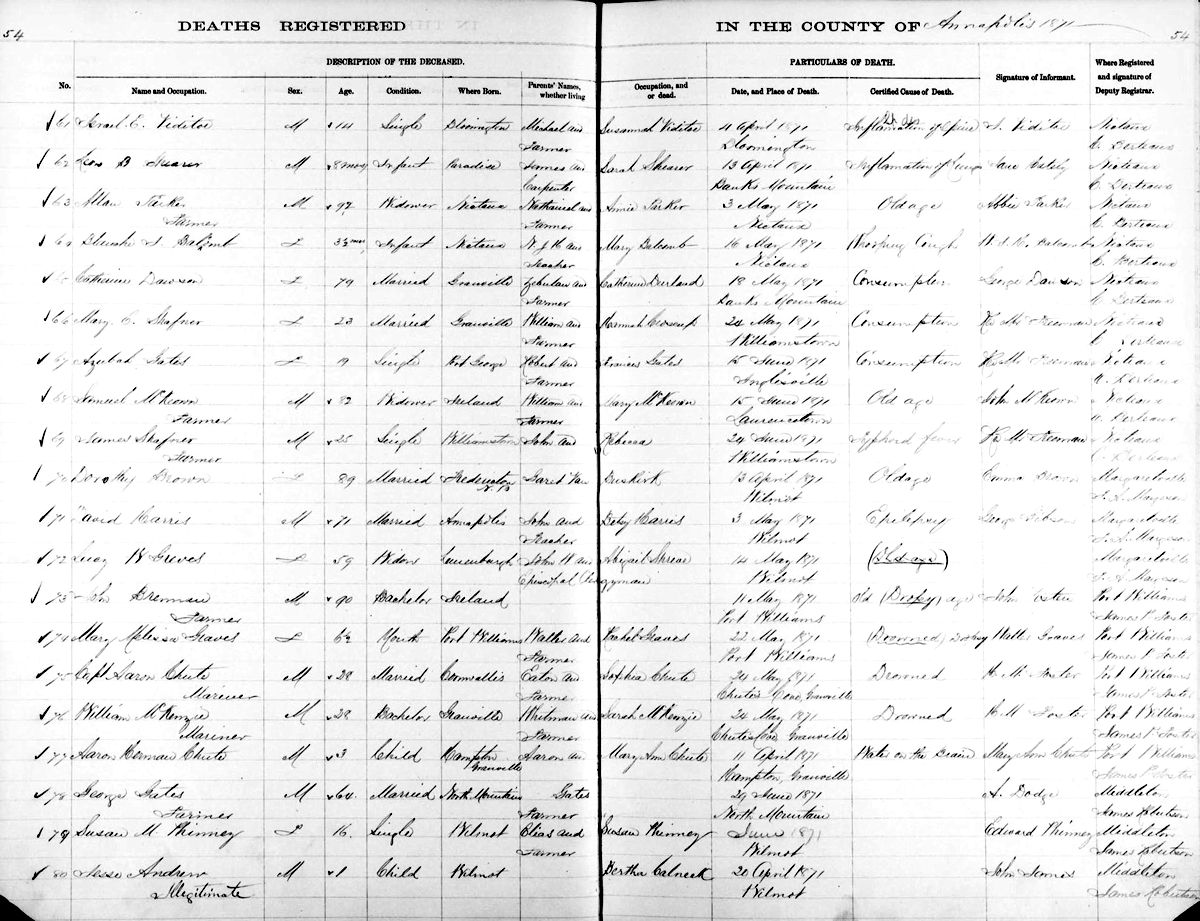 54 DEATHS REGISTERED IN THE COUNTY OF Annapolis 1871 54
DESCRIPTION OF THE DECEASED. PARTICULARS OF DEATH.
No. Name and Occupation. Sex. Age. Condition. Where Born. Parents' Names, whether living Occupation, and or dead. Date, and Place of Death. Certified Cause of Death. Signature of Informant. Where Registered and signature of Deputy Registrar.
61 Israel E. Viditoe M 14 Single Bloomington Michael and Susannah Viditoe 4 April 1871 Inflamation of Spine Viditoe Nictaux
Farmer Bloomington
62 B M 8 mos Infant Paradise James and Sarah Shearer 13 April 1871 Inflamation of Lungs Nictaux
Carpenter Banks Mountain
63 Allan Parker M 97 Widower Nictaux Nathaniel and Annie Parker 3 May 1871 Old age Abbie Parker Nictaux
Farmer Farmer Nictaux
64 Balcomb F 3½ mos Infant Nictaux and Mary Balcomb 16 May 1871 Whooping Cough Balcomb Nictaux
Teacher Nictaux
Catherine Dawson F 79 Married Granville Zebulan and Catherine Durland 18 May 1871 Consumption George Dawson Nictaux
Farmer Banks Mountain
66 Mary E. Shafner F 23 Married Granville William and Hannah 24 May 1871 Consumption Freeman Nictaux
Farmer Williamstown
67 Azubah Gates F 19 Single Port George Robert and Frances Gates 15 June 1871 Consumption Freeman Nictaux
Farmer Inglisville
68 Samuel McKeown M 82 Widower Ireland William and Mary McKeown 15 June 1871 Old age John McKeown Nictaux
Farmer Farmer Laurencetown
69 James Shafner M 25 Single Williamstown John and Rebecca 24 June 1871 Typhoid fever Freeman Nictaux
Farmer Williamstown
70 Dorothy Brown F 89 Married Fredericton N.B Garet Van Buskirk 13 April 1871 Old age Emma Brown Margaretville
Wilmot
71 David Harris M 71 Married Annapolis John and Betsy Harris 3 May 1871 Epilepsy George Margaretville
Teacher Wilmot
72 Lucy W Greves F 59 Widow Lunenburgh John W and Abigail 14 May 1871 (Old age) Margaretville
Episcopal Clergyman Wilmot
73 John Brennan M 90 Bachelor Ireland 11 May 1871 old (Dropsy) age John Port Williams
Farmer Port Williams James P. Foster
74 Mary Melissa Graves F 6½ Youth Port Williams Walter and Rachel Graves 22 May 1871 (Drowned) Dropsy Walter Graves Port Williams
Farmer Port Williams James P. Foster
75 Capt Aaron Chute M 28 Married Cornwallis Eaton and Sophia Chute 24 May 1871 Drowned H. M. Foster Port Williams
Mariner Farmer Chute's Cove, Granville James P. Foster
76 William McKenzie M 28 Bachelor Granville Whitman and Sarah McKenzie 24 May 1871 Drowned H M Foster Port Williams
Mariner Farmer Chutes Cove Granville James P. Foster
77 Aaron Herman Chute M 3 Child Hampton Granville Aaron and Mary Ann Chute 11 April 1871 Water on the Brain Mary Ann Chute Port Williams
Hampton, Granville James P. Foster
78 George Gates M 64 Married North Mountain Gates 29 June 1871 A. Dodge Middleton
Farmer Farmer North Mountain James Robertson
79 Susan M. Phinney F 16 Single Wilmot Elias and Susan Phinney June 1871 Edward Phinney Middleton
Farmer Wilmot James Robertson
80 Jesse Andrew M 1 Child Wilmot Bertha Calneck 20 April 1871 John Middleton
Illegitimate Wilmot James Robertson